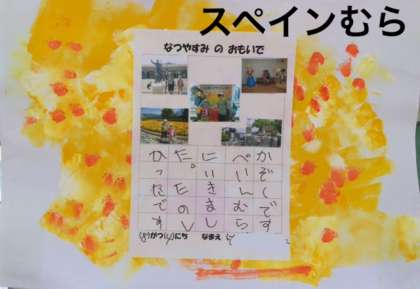 スペインむら
なつやすみ の おもいで
かぞくです
ぺいんむら
にいきまし
た。たのし
かったです
がつ にち なまえ